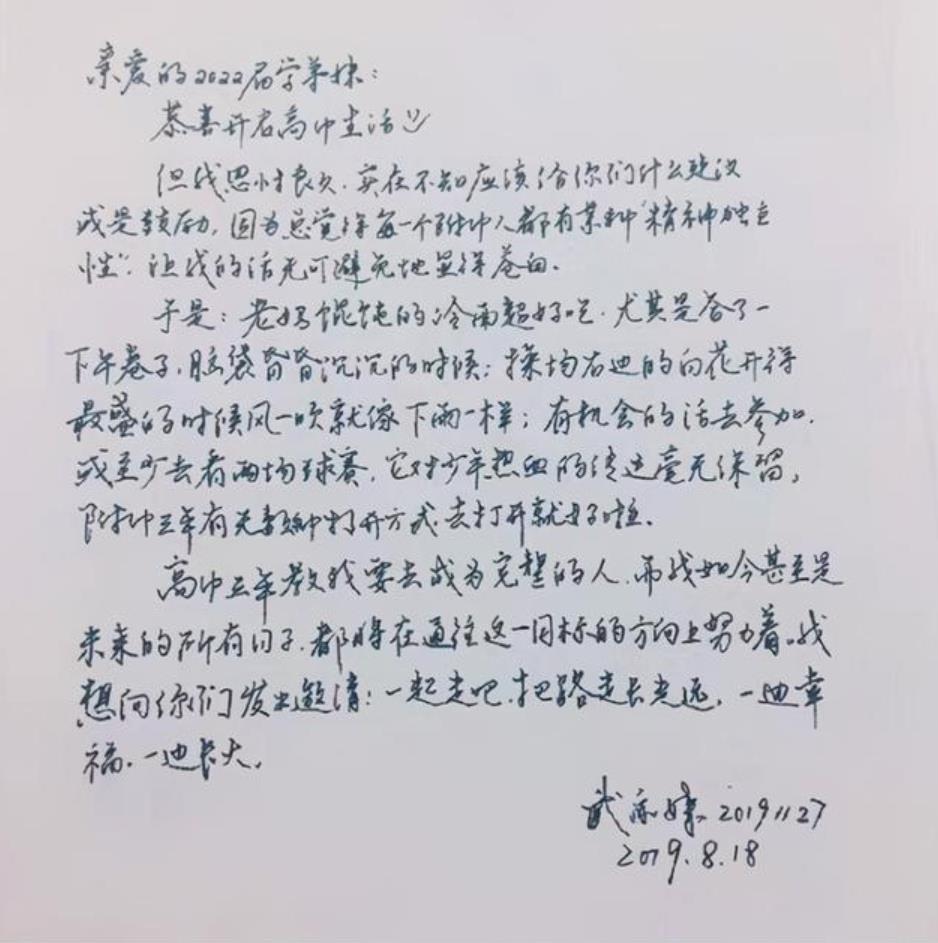 亲爱的2022届学弟妹：
恭喜开启高中生活
但我思忖良久，实在不知应该给你们什么建议
或是鼓励，因为总觉得每一个附中人都有某种“精神独立
性”，让我的话无可避免地显得苍白。
于是：老妈馄饨的冷面超好吃，尤其是答了一
下午卷子，脑袋昏昏沉沉的时候；操场右边的白花开得
最盛的时候风一吹就像下雨一样；有机会的话去参加，
或至少去看两场球赛，它对少年热血的传达毫无保留，
附中三年有无数种打开方式，去打开就好啦。
高中三年教我要去成为完整的人，而我如今甚至是
未来的所有日子，都将在通往这一目标的方向上努力着。我
想向你们发出邀请：一起走吧，把路走长走远，一边幸
福，一边长大。
武亦姝 20191127
2019.8.18